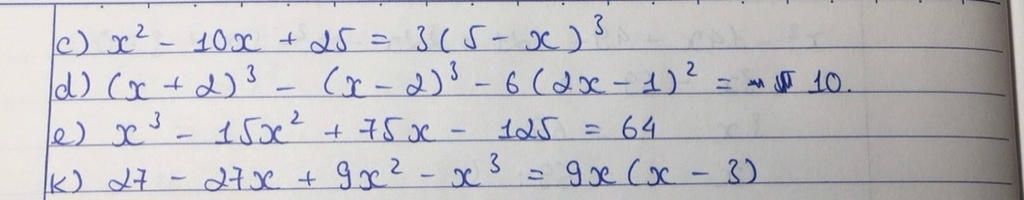 c) x² - 10x + 25 = 3(5 - x)³
d) (x + 2)³ - (x - 2)³ - 6(2x - 1)² = 10.
e) x³ - 15x² + 75x - 125 = 64
k) 27 - 27x + 9x² - x³ = 9x(x - 3)